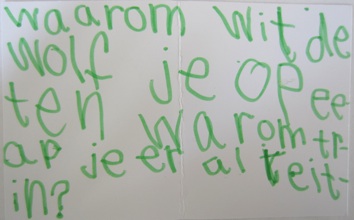 waarom wit de
wolf je op ee
ten warom tr-
ap je er al teit-
in?